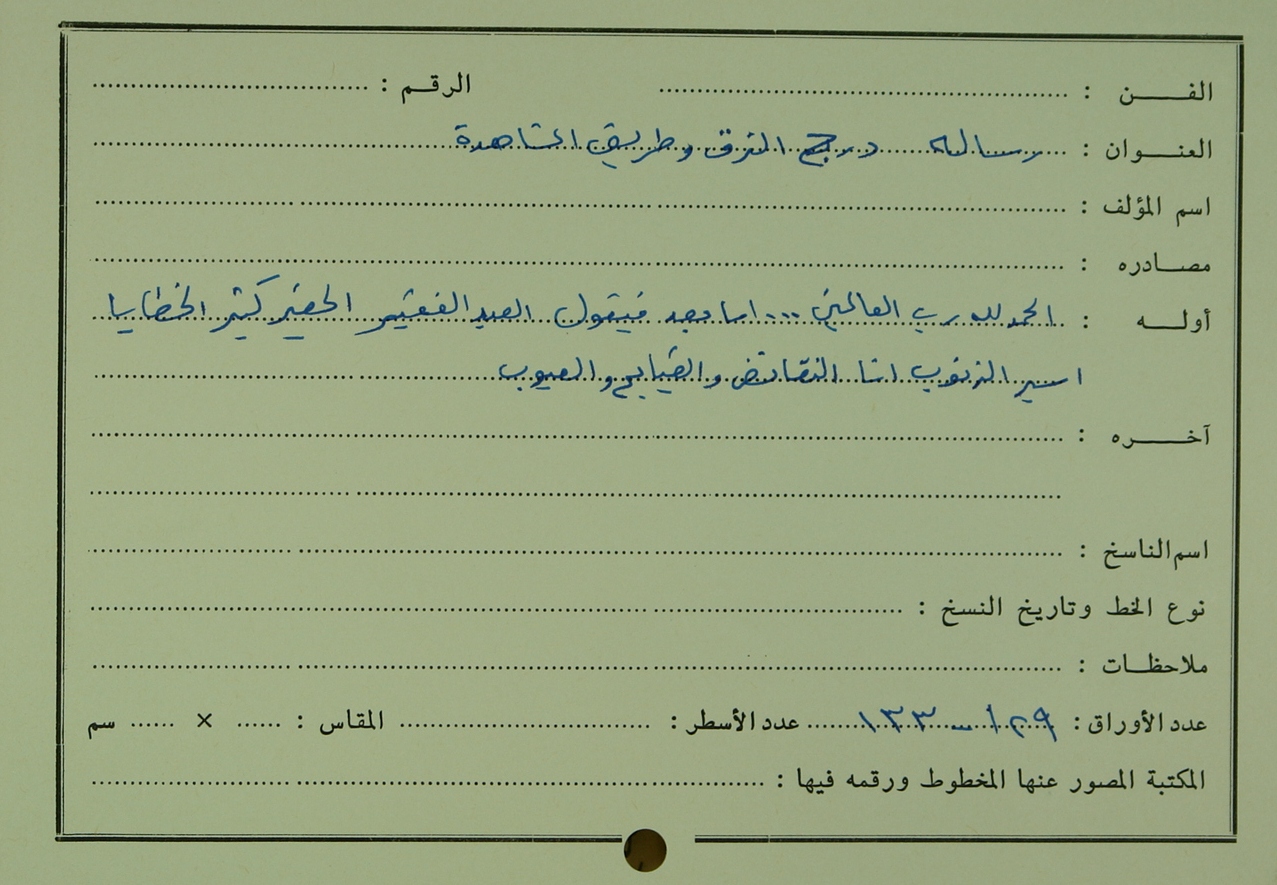 الفن : الرقم :
العنوان : رسالة درج الترق وطريق المشاهدة
اسم المؤلف :
مصادره :
أوله : الحمد لله رب العالمين ... اما بعد فيقول العبد الفقير الحقير كثير الخطايا
اسير الذنوب انا النقائض والقبايح والعيوب
آخره :
اسم الناسخ :
نوع الخط وتاريخ النسخ :
ملاحظات :
عدد الأوراق : ١٢٩ - ١٣٣ عدد الأسطر : المقاس : × سم
المكتبة المصور عنها المخطوط ورقمه فيها :